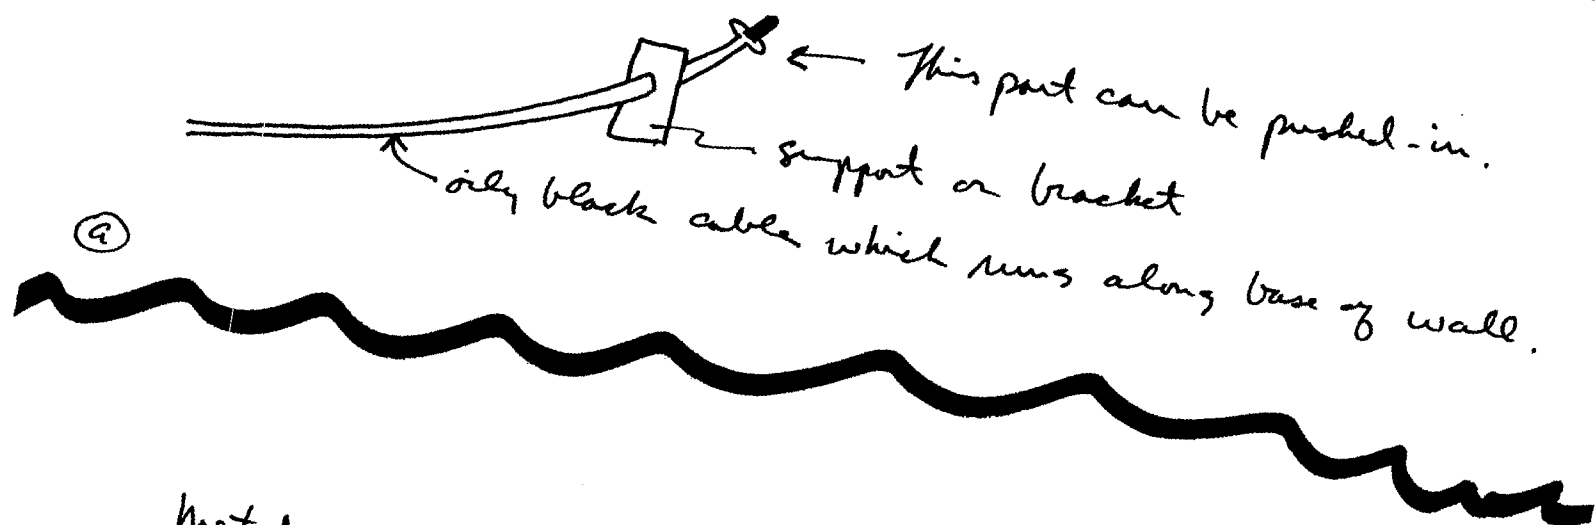 This part can be pushed-in.
support or bracket
oily black cable which runs along base of wall.
a